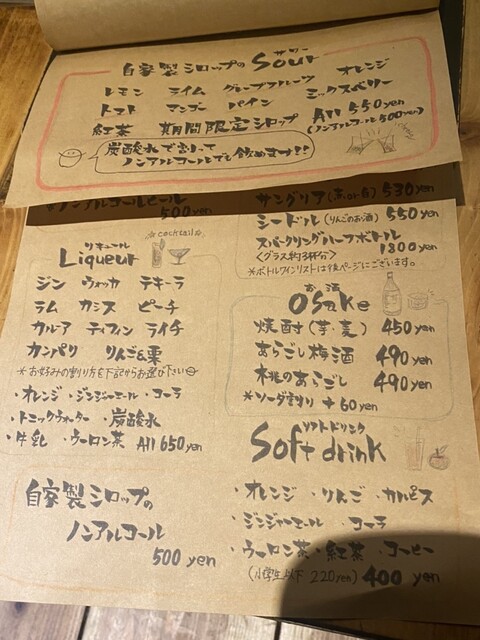 自家製シロップの Sour サワー
レモン ライム グレープフルーツ オレンジ
トマト マンゴー パイン ミックスベリー
紅茶 期間限定シロップ All 550yen
(ノンアルコール500yen)
炭酸水で割って
ノンアルコールでも飲めます!!
ノンアルコールビール
500yen
サングリア(赤or白) 530yen
シードル(りんごのお酒) 550yen
スパークリングハーフボトル
<グラス約3杯分> 1800yen
*ボトルワインリストは
ページにございます。
☆cocktail☆
リキュール
Liqueur
ジン ウォッカ テキーラ
ラム カシス ピーチ
カルーア ティフィン ライチ
カンパリ りんご&棗
*お好みの割り方を下記からお選び下さい
・オレンジ ・ジンジャーエール ・コーラ
・トニックウォーター ・炭酸水
・牛乳 ・ウーロン茶 All 650yen
お酒
Osake
焼酎(芋・麦) 450yen
あらごし梅酒 490yen
桃のあらごし 490yen
*ソーダ割り +60yen
ソフトドリンク
Soft drink
・オレンジ ・りんご ・カルピス
・ジンジャーエール ・コーラ
・ウーロン茶 ・紅茶 ・コーヒー
(小学生以下 220yen) 400yen
自家製シロップの
ノンアルコール
500yen